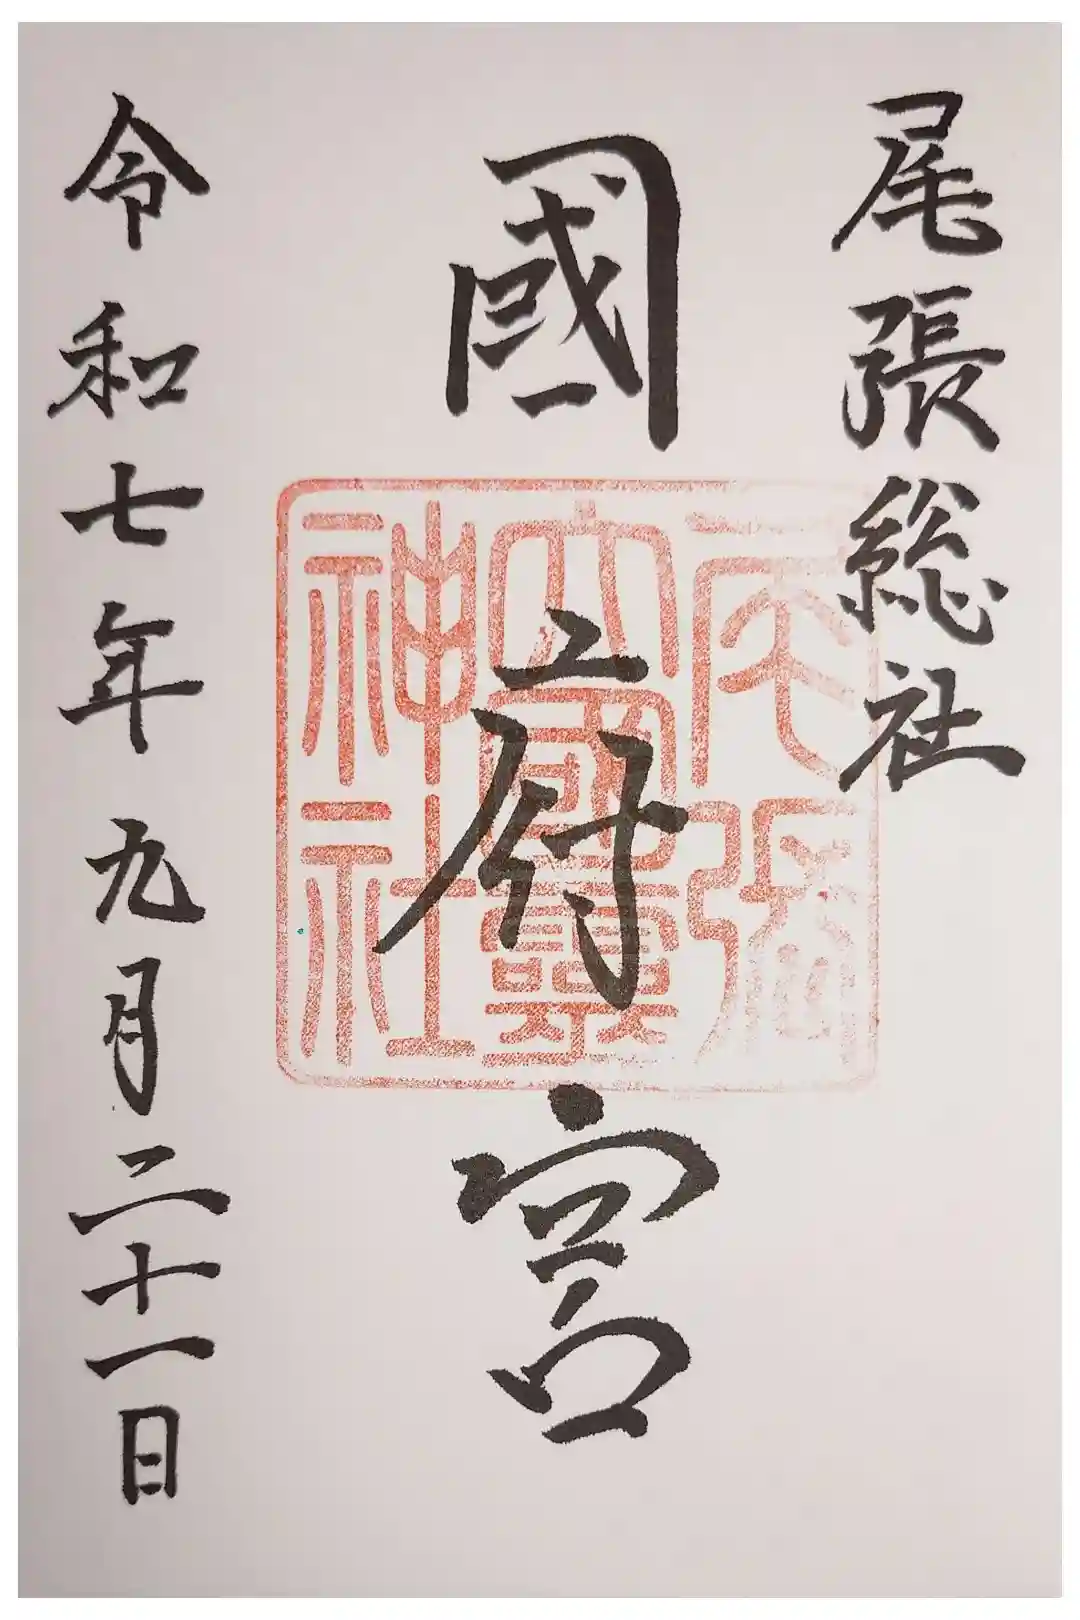 尾張総社
國府宮
令和七年九月二十一日
尾張
大國霊
神社